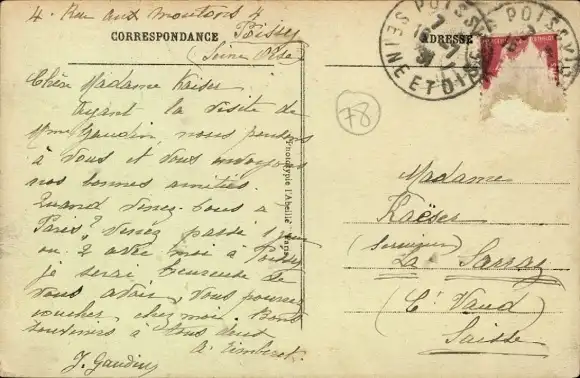 4. Rue aux moutons 4
Poissy
(Seine Oise)
CORRESPONDANCE
ADRESSE
POISSY
SEINE ET OISE
POISSY
78
Chère Madame Kaiser
Ayant la visite de
Mme Gaudin, nous pensons
à vous et vous envoyons
nos bonnes amitiés.
Quand venez-vous à
Paris? Venez passer 1 jour
ou 2 avec moi à Poissy
je serai heureuse de
vous avoir, vous pourrez
coucher chez moi. Bons
souvenirs à tous deux
J. Gaudin
Phototypie l'Abeille, Paris
Madame
Kaëser
La Sarraz
(Ct Vaud)
Suisse